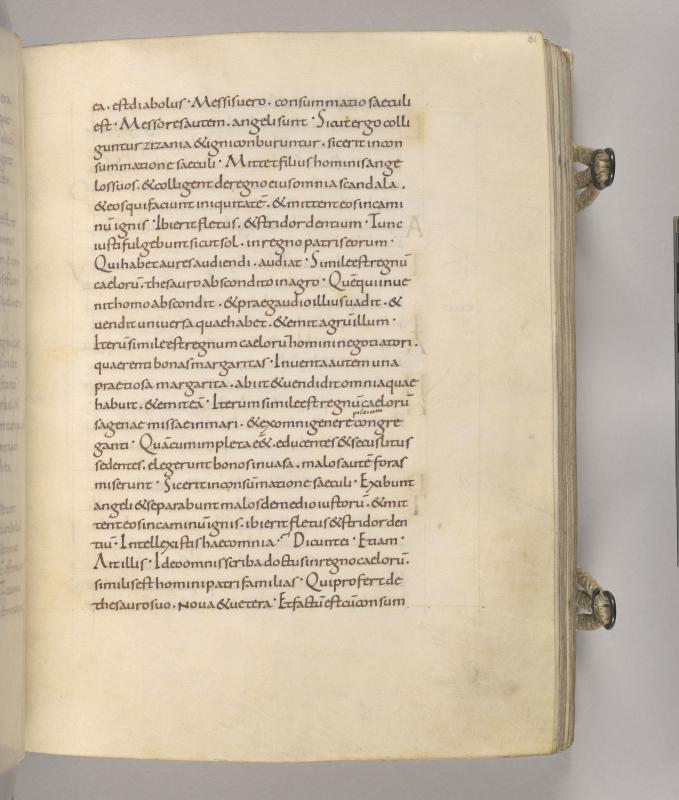 31
ea. est diabolus · Messis uero. consummatio saeculi
est · Messores autem. angeli sunt · Sicut ergo colli
guntur zizania & igni conburuntur. sic erit in con
summatione saeculi · Mittet filius hominis ange
los suos. & colligent de regno eius omnia scandala.
& eos qui faciunt iniquitatē. & mittent eos in cami
nū ignis · Ibi erit fletus. & stridor dentium · Tunc
iusti fulgebunt sicut sol. in regno patris eorum ·
Qui habet aures audiendi. audiat · Simile est regnū
caelorū. thesauro abscondito in agro · Quē qui inue
nit homo abscondit. & prae gaudio illius uadit. &
uendit uniuersa quae habet. & emit agrū illum ·
Iterū simile est regnum caelorū homini negotiatori.
quaerenti bonas margaritas · Inuenta autem una
praetiosa margarita. abiit & uendidit omnia quae
habuit. & emit eā · Iterum simile est regnū caelorū
sagenae missae in mari. & ex omni genere piscium congre
ganti · Quā cum impleta e&. educentes & secus litus
sedentes. elegerunt bonos in uasa. malos autē foras
miserunt · Sic erit in consūmatione saeculi · Exibunt
angeli & separabunt malos de medio iustorū. & mit
tent eos in caminū ignis. ibi erit fletus & stridor den
tiū · Intellexistis haec omnia · Dicunt ei · Etiam ·
Ait illis · Ideo omnis scriba doctus in regno caelorū.
similis est homini patri familias · Qui profert de
thesauro suo. noua & uetera · Et factū est cū consum